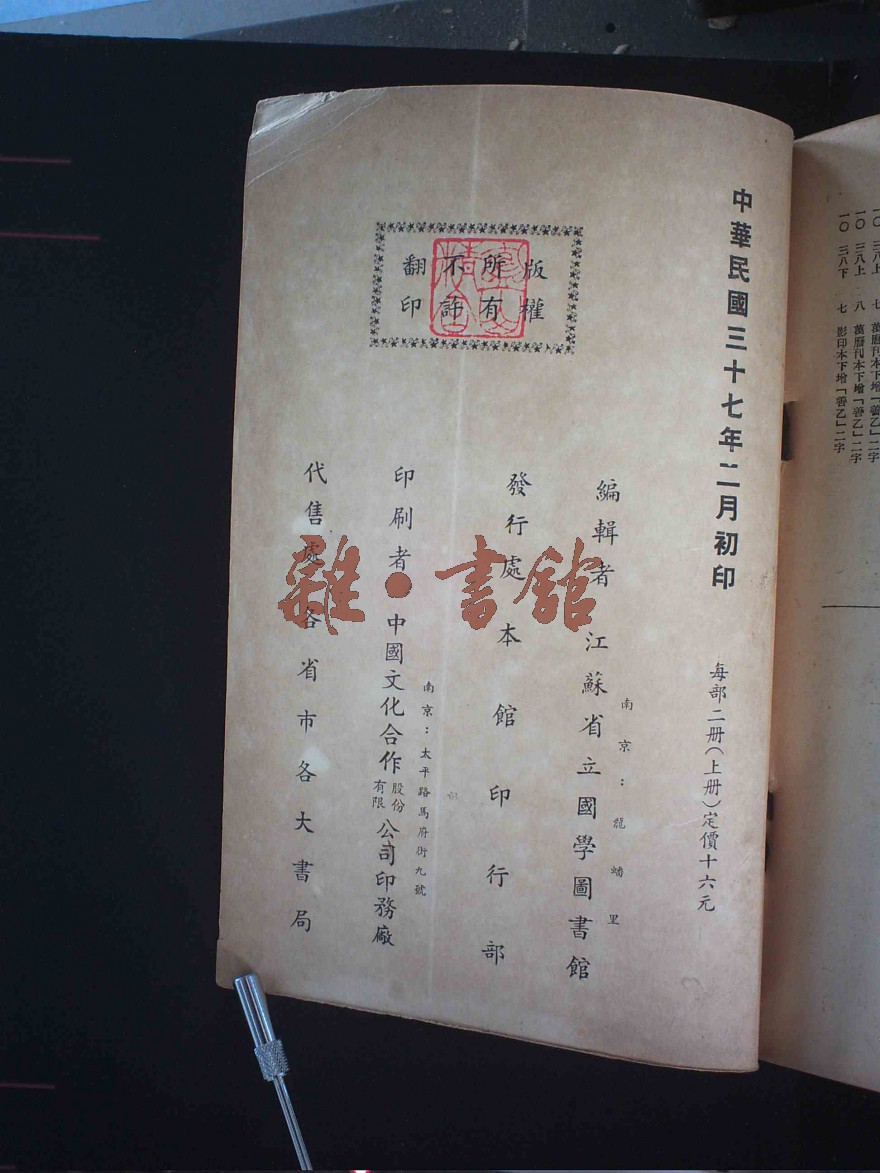 一〇 三八上 七 萬曆刊本下增「善乙」二字
一〇 三八上 八 萬曆刊本下增「善乙」二字
一〇 三八下 七 影印本下增「善乙」二字
中華民國三十七年二月初印
每部二册（上册）定價十六元
版權
所有
不許
翻印
南京：龍蟠里
編輯者 江蘇省立國學圖書館
發行處 本館印行部
南京：太平路馬府街九號
印刷者 中國文化合作股份有限公司印務廠
代售處 各省市各大書局
雜·書館